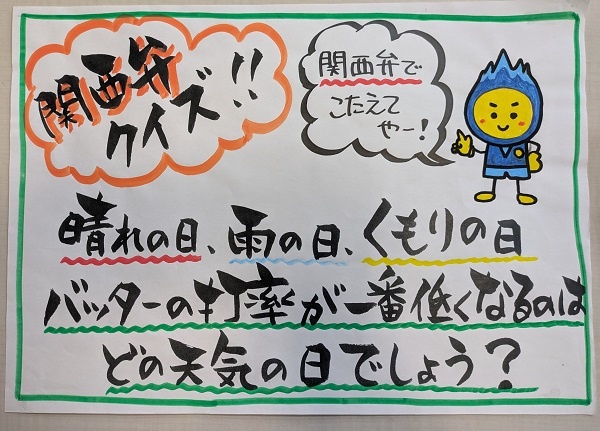 関西弁
クイズ!!
関西弁で
こたえて
やー!
晴れの日、雨の日、くもりの日
バッターの打率が一番低くなるのは
どの天気の日でしょう?